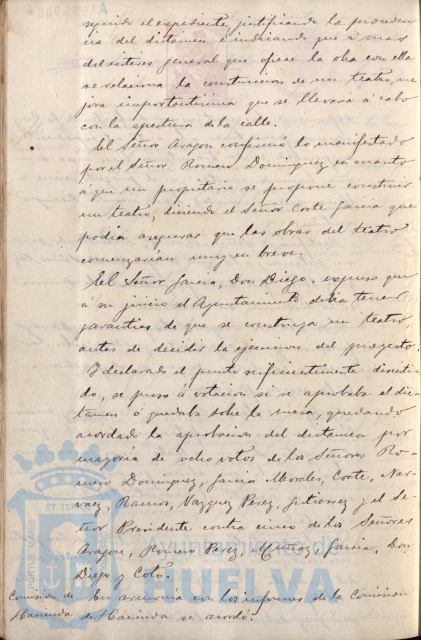 seguido el expediente, justificando la proceden-
cia del dictamen é indicando que á mas
del interes general que ofrece la obra con ella
se relaciona la construccion de un teatro, me
jora importantisima que se llevara á cabo
con la apertura de la calle.
El Señor Aragon confirmó lo manifestado
por el Señor Romero Dominguez en cuanto
á que un propietario se propone construir
un teatro, diciendo el Señor Corte Garcia que
podia asegurar que las obras del teatro
comenzarian muy en breve.
El Señor Garcia, Don Diego, expuso que
á su juicio el Ayuntamiento debia tener
garantias de que se construya un teatro,
antes de decidir la ejecucion del proyecto.
Y declarado el punto suficientemente discuti-
do, se puso á votacion si se aprobaba el dic-
tamen ó quedaba sobre la mesa, quedando
acordado la aprobacion del dictamen por
mayoria de ocho votos de los Señores Ro-
mero Dominguez, Garcia Morales, Corte, Nar-
vaez, Ramos, Vazquez Perez, Gutierrez y el Se-
ñor Presidente contra cinco de los Señores
Aragon, Romero Perez, Muñoz, Garcia, Don
Diego y Coto.
Comision de Hacienda
En armonia con los informes de la Comision
de Hacienda se acordó:
PORTUS MARIS
ET TERRÆ
Ayuntamiento de
HUELVA